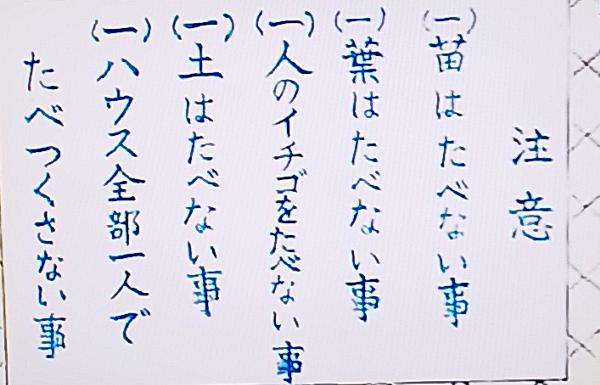 注意
(一)苗はたべない事
(一)葉はたべない事
(一)人のイチゴをたべない事
(一)土はたべない事
(一)ハウス全部一人で
たべつくさない事